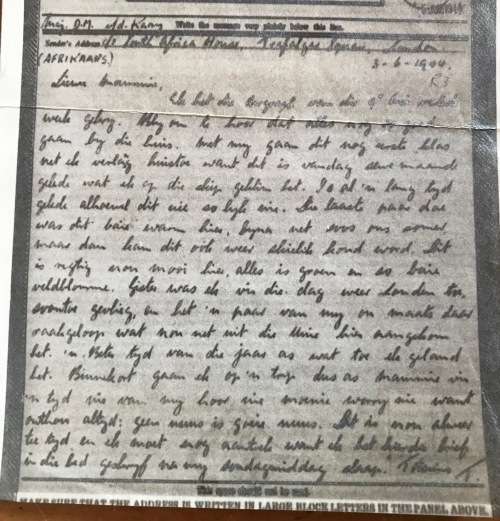 Write the message very plainly below this line.
Sender's Address: South Africa House, Trafalgar Square, London
(AFRIKAANS) 3-6-1944.
Liewe Mammie,
Ek het die
weke gelog. Bly om te hoor dat alles nog so goed
gaan by die huis. Met my gaan dit nog eerste klas
net ek verlang huistoe want dit is vandag sewe maande
gelede wat ek op die skip geklim het. Is al 'n lang tyd
gelede alhoewel dit nie so lyk nie. Die laaste paar dae
was dit baie warm hier, byna net soos ons somer
maar dan kan dit ook weer skielik koud word. Dit
is regtig nou mooi hier, alles is groen en so baie
veldblomme. Gister was ek vir die dag weer Londen toe,
gevlieg, en het 'n paar van my ou maats daar
raakgeloop wat nou net uit die Unie hier aangekom
het. 'n Beter tyd van die jaar as wat toe ek geland
het. Binnekort gaan ek op 'n trip dus as Mammie vir
'n tyd nie van my hoor nie moenie worry nie want
onthou altyd: geen nuus is goeie nuus. Dit is nou alweer
tee tyd en ek moet nog want ek het hierdie brief
in die bed geskryf na my Sondagmiddag slaap. T.
This space should not be used.
MAKE SURE THAT THE ADDRESS IS WRITTEN IN LARGE BLOCK LETTERS IN THE PANEL ABOVE.